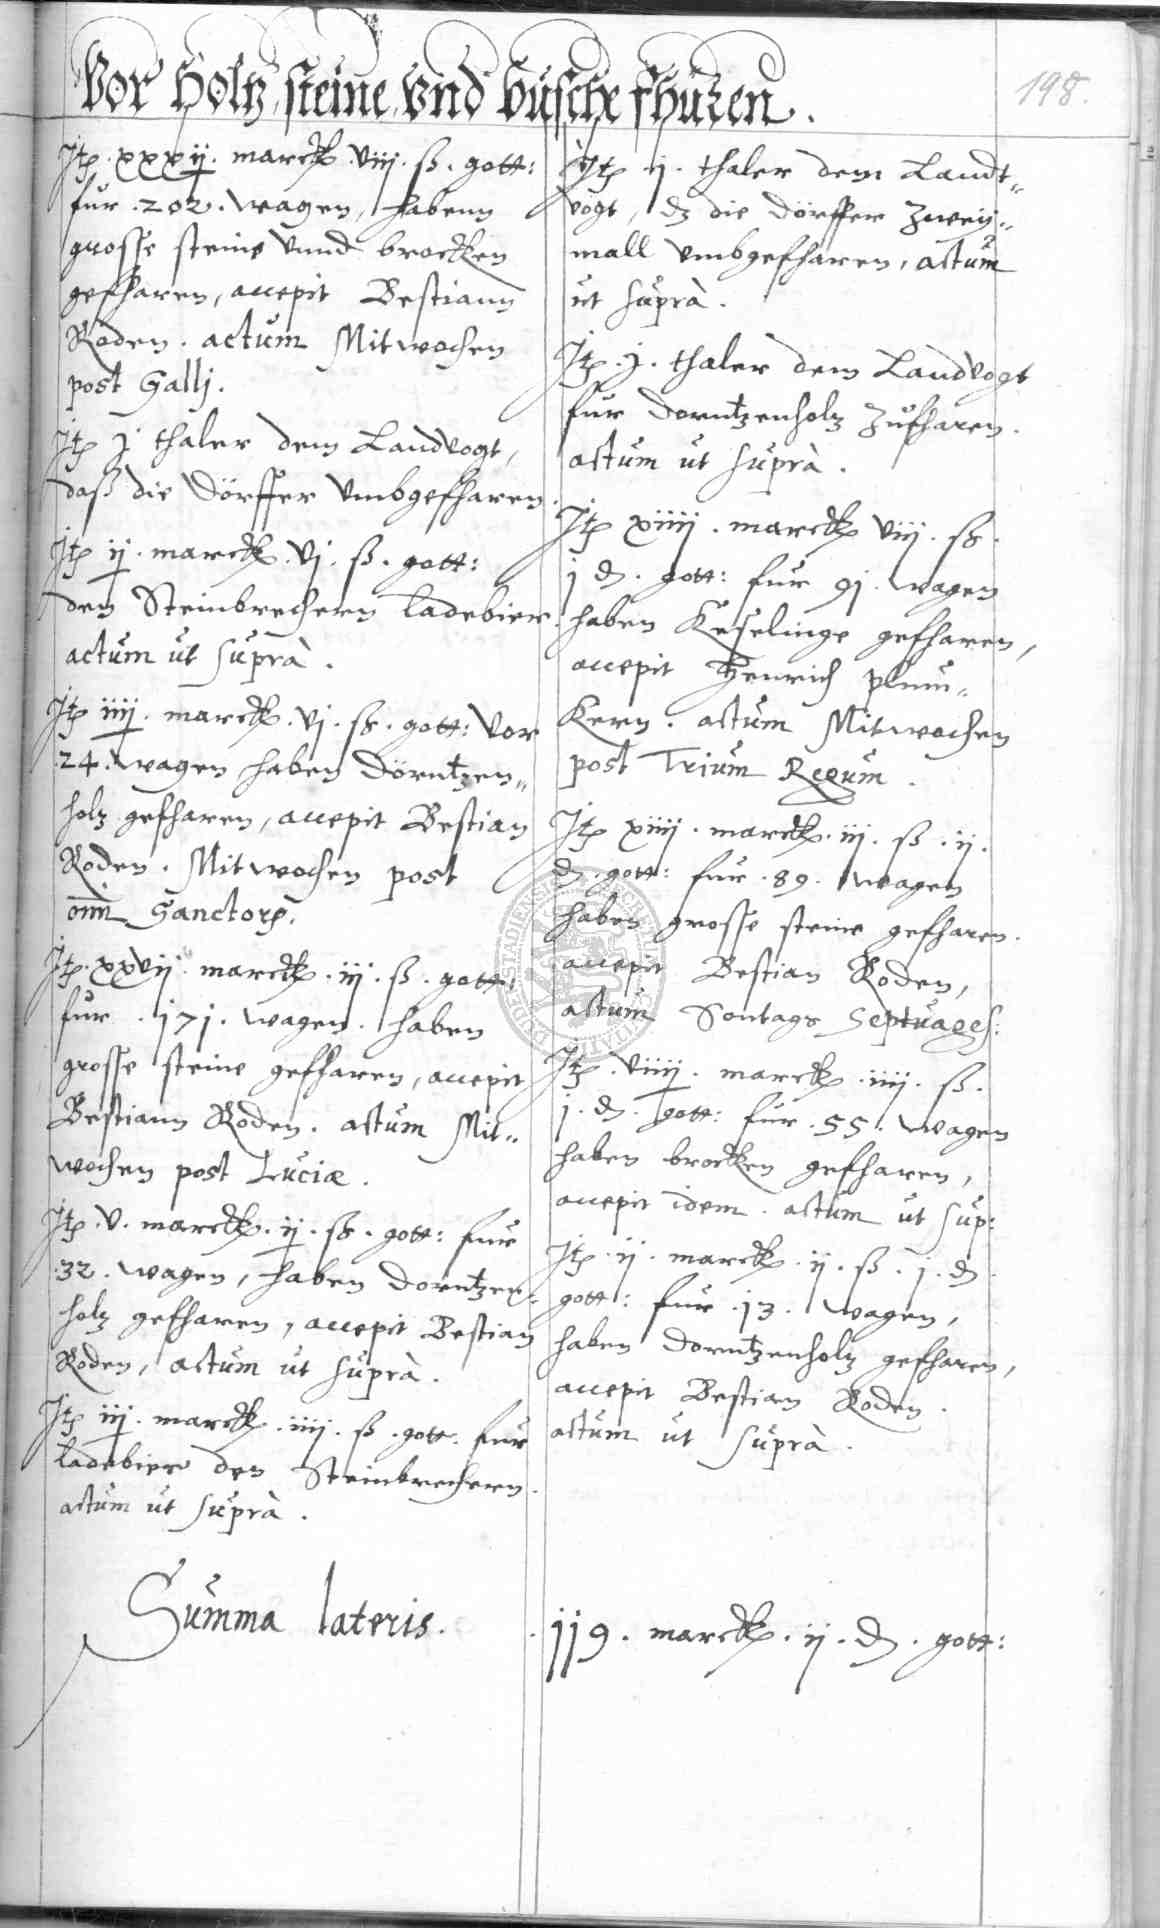 Vor Holtz, steine, Vnd büsche fhüren.
198.
Itp. xxxij. marck viij. ß. gott:
für .202. wagen, habenn
grosse steine vnnd brocken
gefharen, accepit Bestiann
Roden. actum Mitwochen
post Gallj.
Itp j thaler dem Landvogt,
daß die Dörffer vmbgefharen.
Itp ij. marck. vj. ß. gott:
den Steinbrechern ladebier.
actum ut suprà.
Itp iiij. marck. vj. ß. gott: vor
.24. wagen haben Dörntzen„
holtz gefharen, accepit Bestian
Roden. Mitwochen post
om̄ Sanctorp.
Itp. xxvij. marck. iij. ß. gott:
für .171. wagen. haben
grosse steine gefharen, accepit
Bestiann Roden. actum Mit„
wochen post Luciæ.
Itp. v. marck. ij. ß. gott: fur
.32. wagen, haben Dorntzen„
holtz gefharen, accepit Bestian
Roden, actum ut suprà.
Itp iij. marck. iiij. ß. gott. fur
ladebier den Steinbrechern.
actum ut suprà.
Itp ij. thaler dem Landt„
vogt, dz die Dörffer Zweij„
mall vmbgefharen, actum
ut suprà.
Itp. j. thaler dem Landvogt
fur Dorntzenholtz Zufharen.
actum ut suprà.
Itp xiiij. marck viij. ß.
j d. gott: fur 91. wagen
haben Keselinge gefharen,
accepit Henrich plüm„
Kern. actum Mitwochen
post Trium Regum.
Itp xiiij. marck. iij. ß. ij.
d. gott: fur .89. wagen
haben grosse steine gefharen.
accepit Bestian Roden,
actum Sontags Septuages:
Itp. viiij. marck. iiij. ß.
j. d. gott: fur .55. wagen
haben brocken gefharen,
accepit idem. actum ut sup:
Itp. ij. marck. ij. ß. j. d
gott: fur .13. wagen,
haben Dorntzenholtz gefharen,
accepit Bestian Roden.
actum ut suprà.
Summa lateris. .119. marck. ij. d. gott: